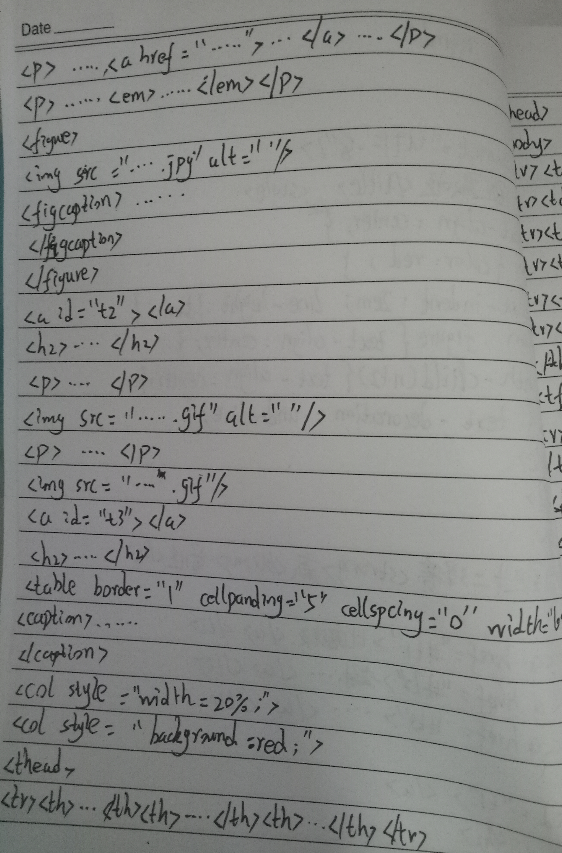 Date
<p> ..... <a href = "....."> ... </a> .... </p>
<p> ...... <em> ...... </em> </p>
<figure>
<img src = "....jpg" alt=" "/>
<figcaption> ......
</figcaption>
</figure>
<a id="t2"> </a>
<h2> .... </h2>
<p> .... </p>
<img src = "......gif" alt=" "/>
<p> .... </p>
<img src = "....gif"/>
<a id= "t3"> </a>
<h2> .... </h2>
<table border="1" cellpanding="5" cellspcing="0" width="
<caption> ......
</caption>
<col style ="width=20%;">
<col style= "background=red;">
<thead>
<tr><th> ... </th><th> .... </th><th> ... </th> </tr>
head>
ody>
tr><t
tr><t
tr><t
tr><t
tr><
tr><